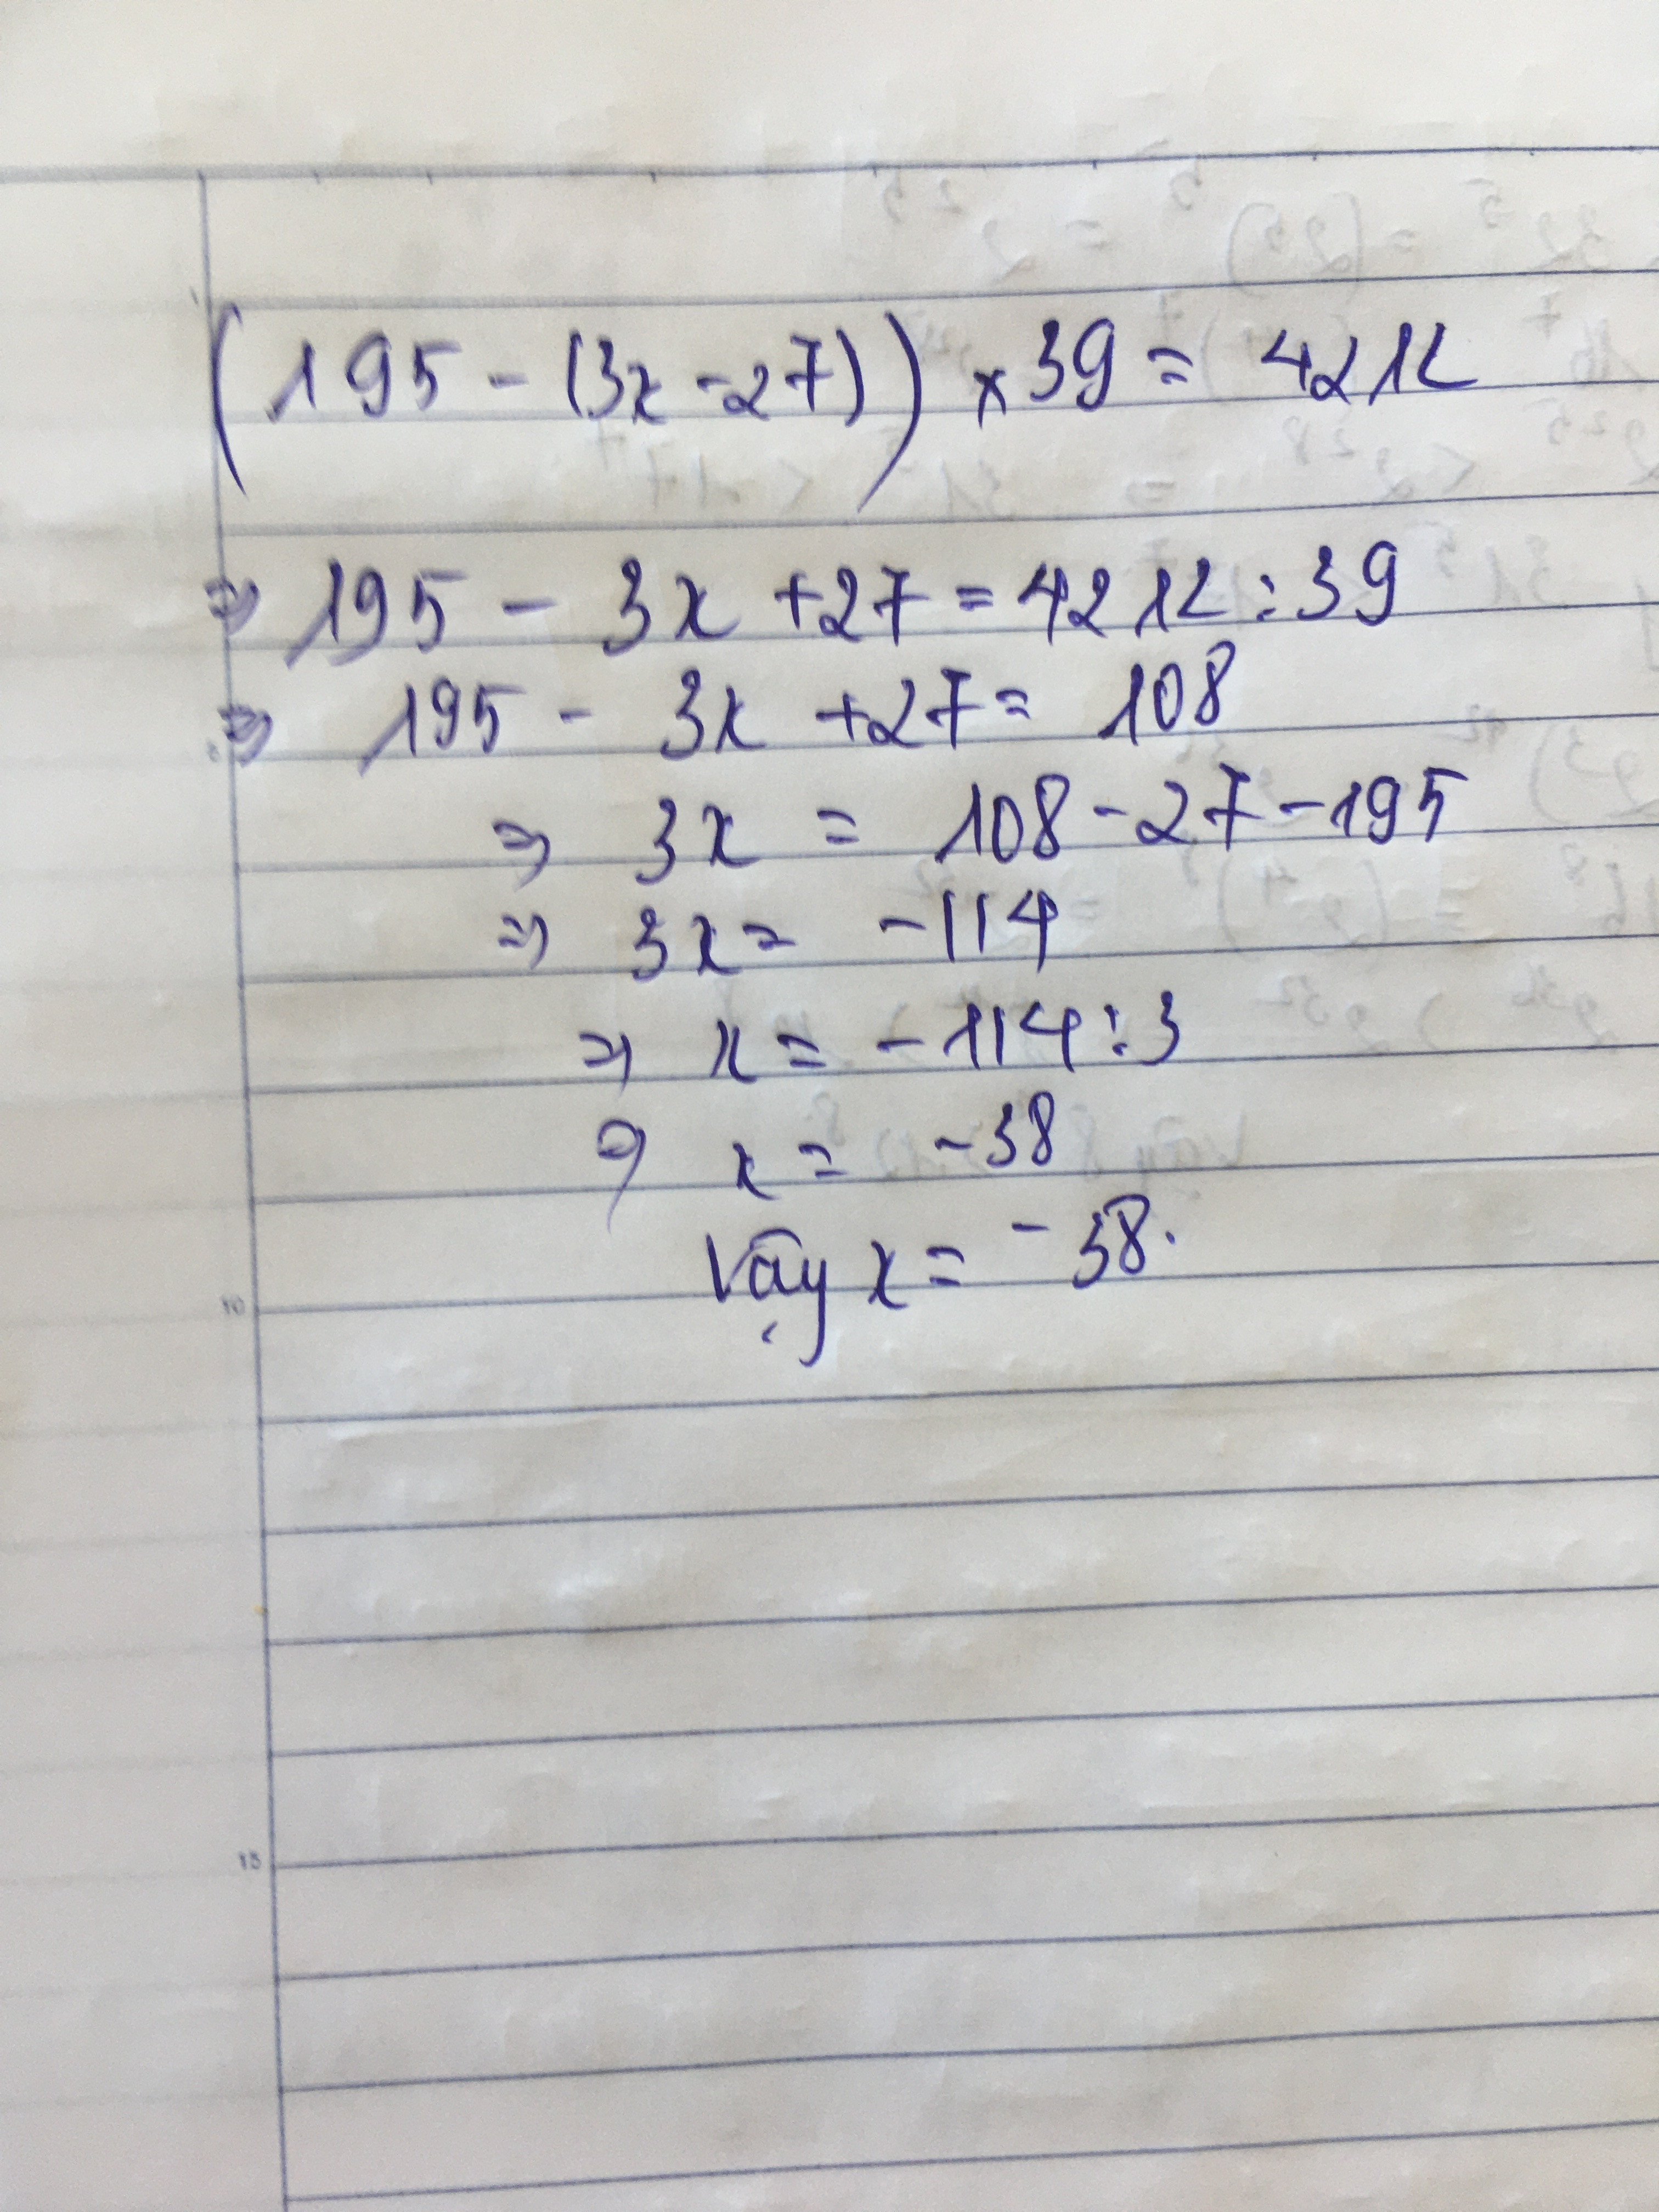 (195 - (3x - 27)) × 39 = 4212
⇒ 195 - 3x + 27 = 4212 : 39
⇒ 195 - 3x + 27 = 108
⇒ 3x = 108 - 27 - 195
⇒ 3x = -114
⇒ x = -114 : 3
⇒ x = -38
Vậy x = -38.
10
15